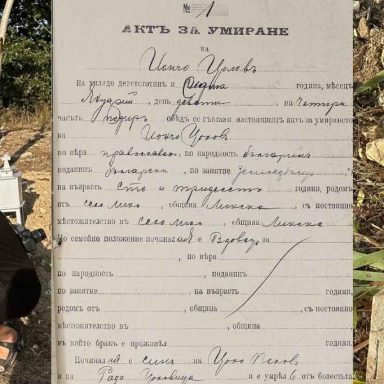 № 1
АКТЪ ЗА УМИРАНЕ
на
Цончо
На хилядо деветстотинъ и Седма година, мѣсецъ
Януарий, день девети, на Четири
часътъ подиръ обѣдъ се състави настоящиятъ актъ за умирането
на Цончо Цоковъ
по вѣра православенъ, по народность българинъ
поданикъ Български, по занятие
на възрасть Сто и тридесеть години, родомъ
отъ село , община , съ постоянно
мѣстожителство въ село , община
По семейно положение починалия е Вдовецъ за
, по вѣра
по народность, поданикъ
по занятие, на възрасть години,
родомъ отъ, община, съ постоянно
мѣстожителство въ, община
въ който бракъ е проживѣлъ години.
Починалия е синъ на Цоко
и на Рада Цоковица и е умрѣлъ отъ болесть